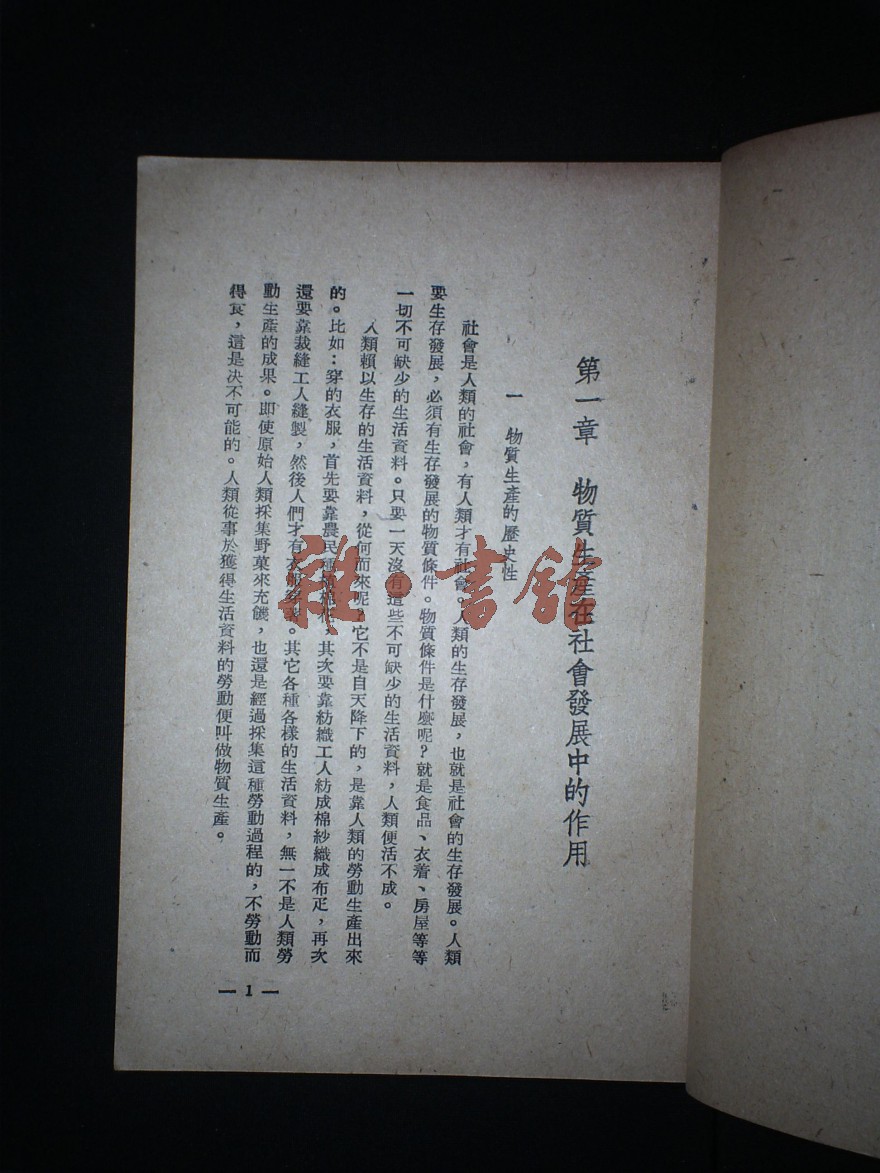 第一章 物質生產在社會發展中的作用
一 物質生產的歷史性
社會是人類的社會，有人類才有社會。人類的生存發展，也就是社會的生存發展。人類
要生存發展，必須有生存發展的物質條件。物質條件是什麼呢？就是食品、衣着、房屋等等
一切不可缺少的生活資料。只要一天沒有這些不可缺少的生活資料，人類便活不成。
人類賴以生存的生活資料，從何而來呢？它不是自天降下的，是靠人類的勞動生產出來
的。比如：穿的衣服，首先要靠農民種植棉花，其次要靠紡織工人紡成棉紗織成布疋，再次
還要靠裁縫工人縫製，然後人們才有衣服穿着。其它各種各樣的生活資料，無一不是人類勞
動生產的成果。即使原始人類採集野菓來充饑，也還是經過採集這種勞動過程的，不勞動而
得食，這是决不可能的。人類從事於獲得生活資料的勞動便叫做物質生產。
— 1 —
雜·書舘